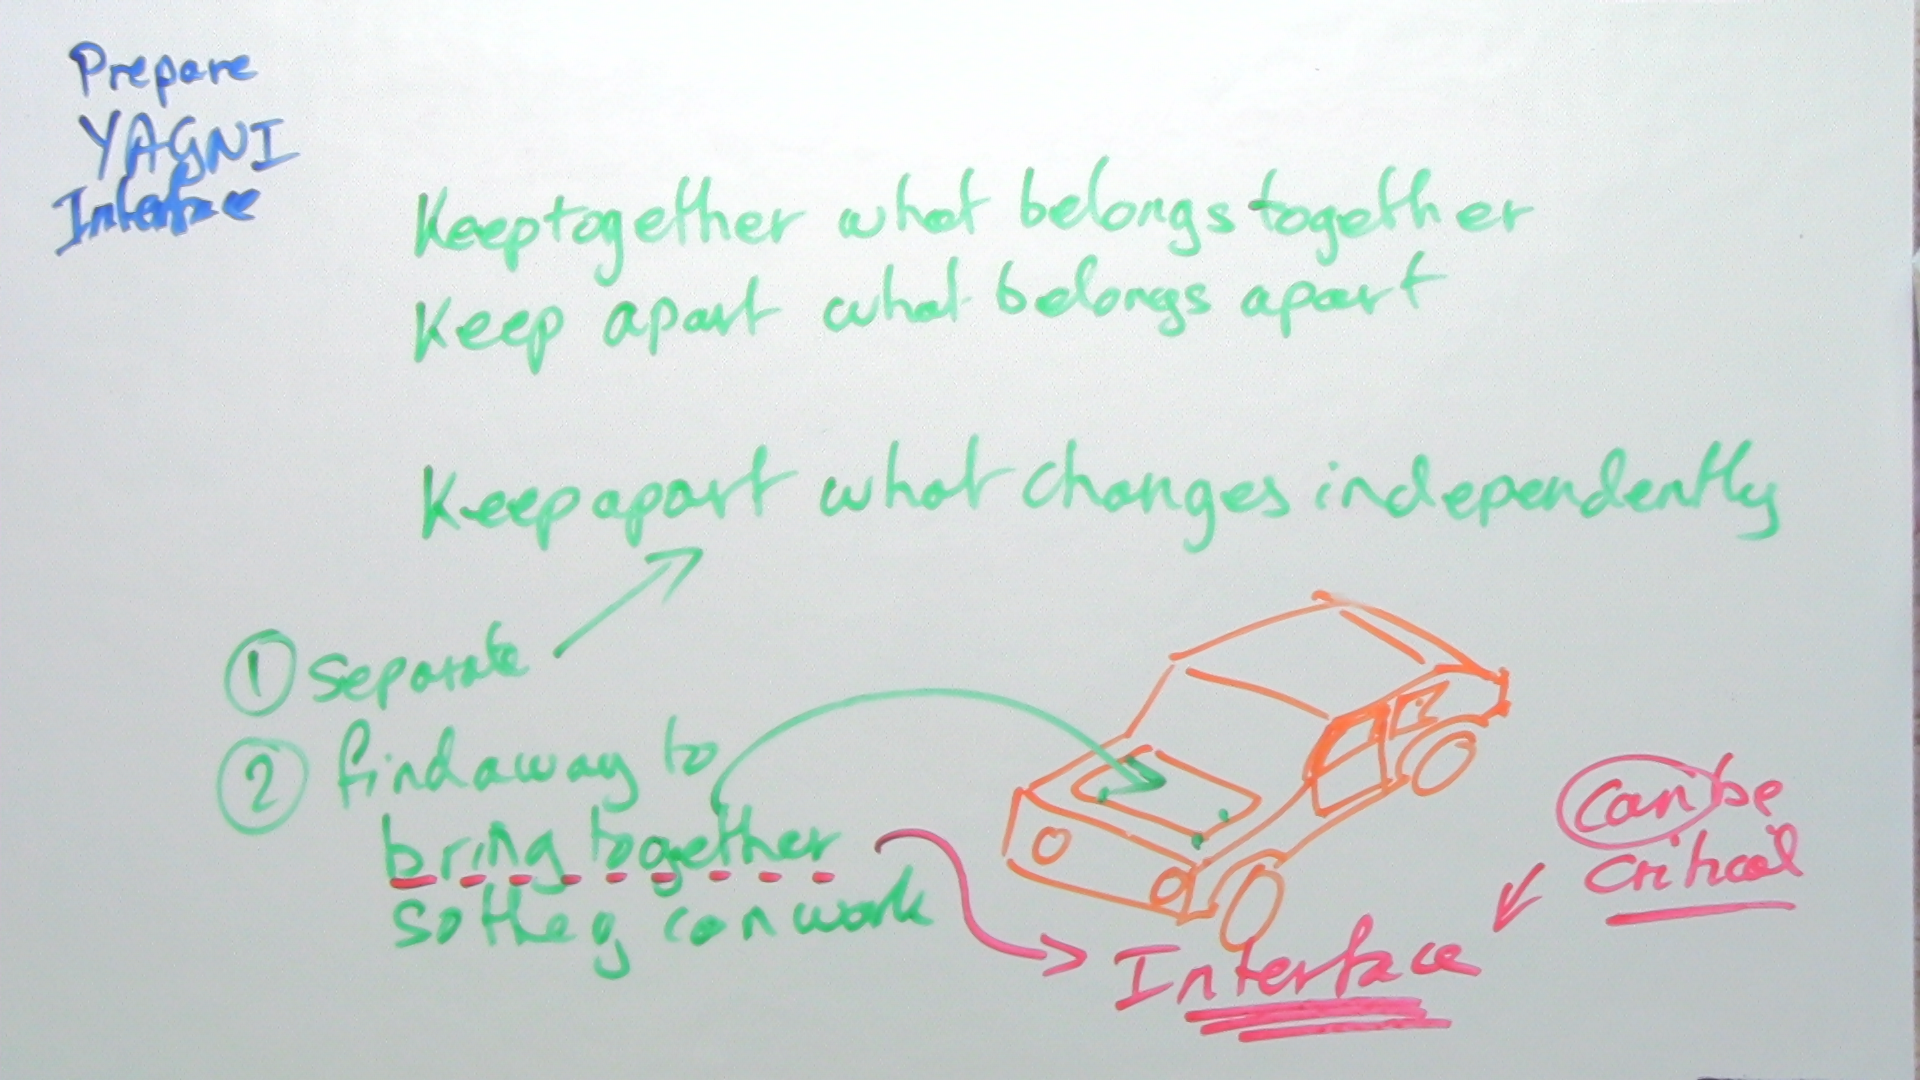 Prepare
YAGNI
Interface
Keep together what belongs together
Keep apart what belongs apart
Keep apart what changes independently
① separate
② find a way to
bring together
so they can work
Can be
critical
Interface